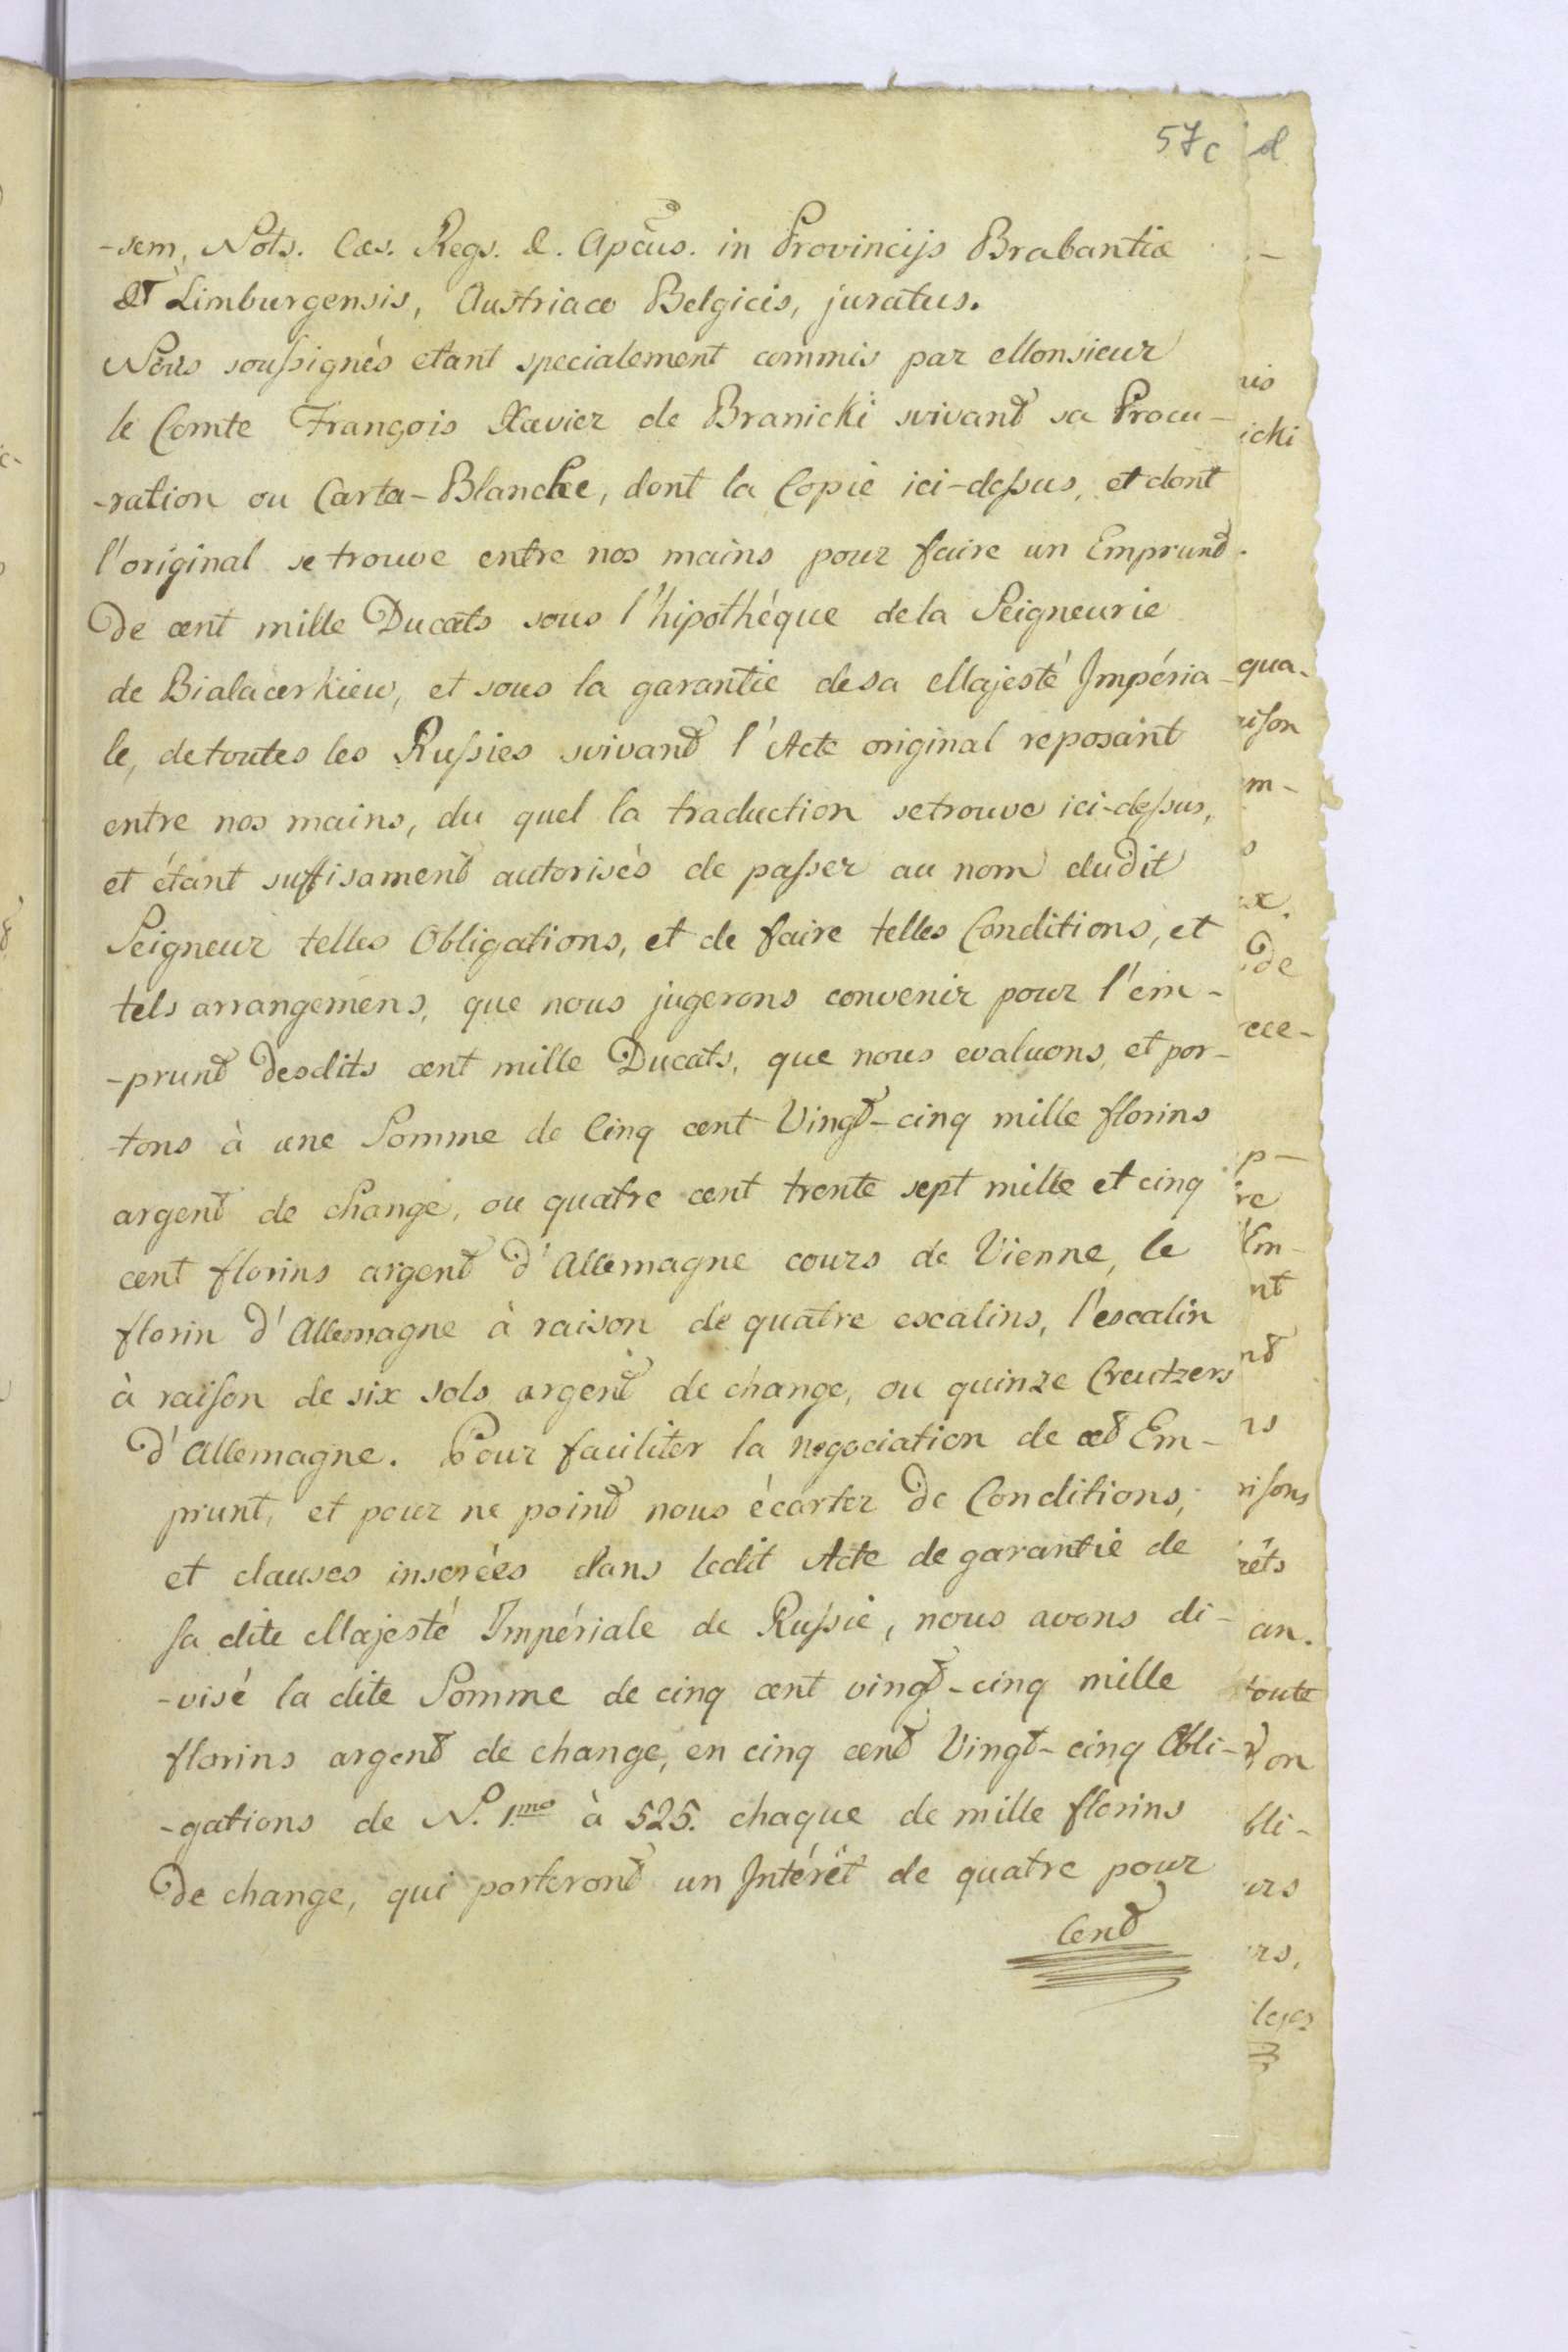 57c d
-sem, Nots. Cæs. Regs. &. Apcus. in Provincijs Brabantiæ
Et Limburgensis, Austriaco Belgicis, juratus.
Nous soussignés etant specialement commis par Monsieur
le Comte François Xavier de Branicki suivant sa Procu-
-ration ou Carta-Blanche, dont la Copie ici-dessus, et dont
l'original se trouve entre nos mains pour faire un Emprunt
de cent mille Ducats sous l'hipothéque de la Seigneurie
de Bialacerkiew, et sous la garantie de sa Majesté Impéria-
le, de toutes les Russies suivant l'Acte original reposant
entre nos mains, du quel la traduction se trouve ici-dessus,
et étant suffisament autorisés de passer au nom dudit
Seigneur telles Obligations, et de faire telles Conditions, et
tels arrangemens, que nous jugerons convenir pour l'em-
-prunt desdits cent mille Ducats, que nous evaluons, et por-
-tons à une Somme de Cinq cent Vingt-cinq mille florins
argent de change, ou quatre cent trente sept mille et cinq
cent florins argent d'Allemagne cours de Vienne, le
florin d'Allemagne à raison de quatre escalins, l'escalin
à raison de six sols argent de change, ou quinze Creutzers
d'Allemagne. Pour faciliter la negociation de cet Em-
prunt, et pour ne point nous écarter de Conditions,
et clauses inserées dans ledit Acte de garantie de
sa dite Majesté Impériale de Russie, nous avons di-
-visé la dite Somme de cinq cent vingt-cinq mille
florins argent de change, en cinq cent Vingt-cinq Obli-
-gations de N. 1.mo à 525. chaque de mille florins
de change, qui porteront un Intérêt de quatre pour
Cent